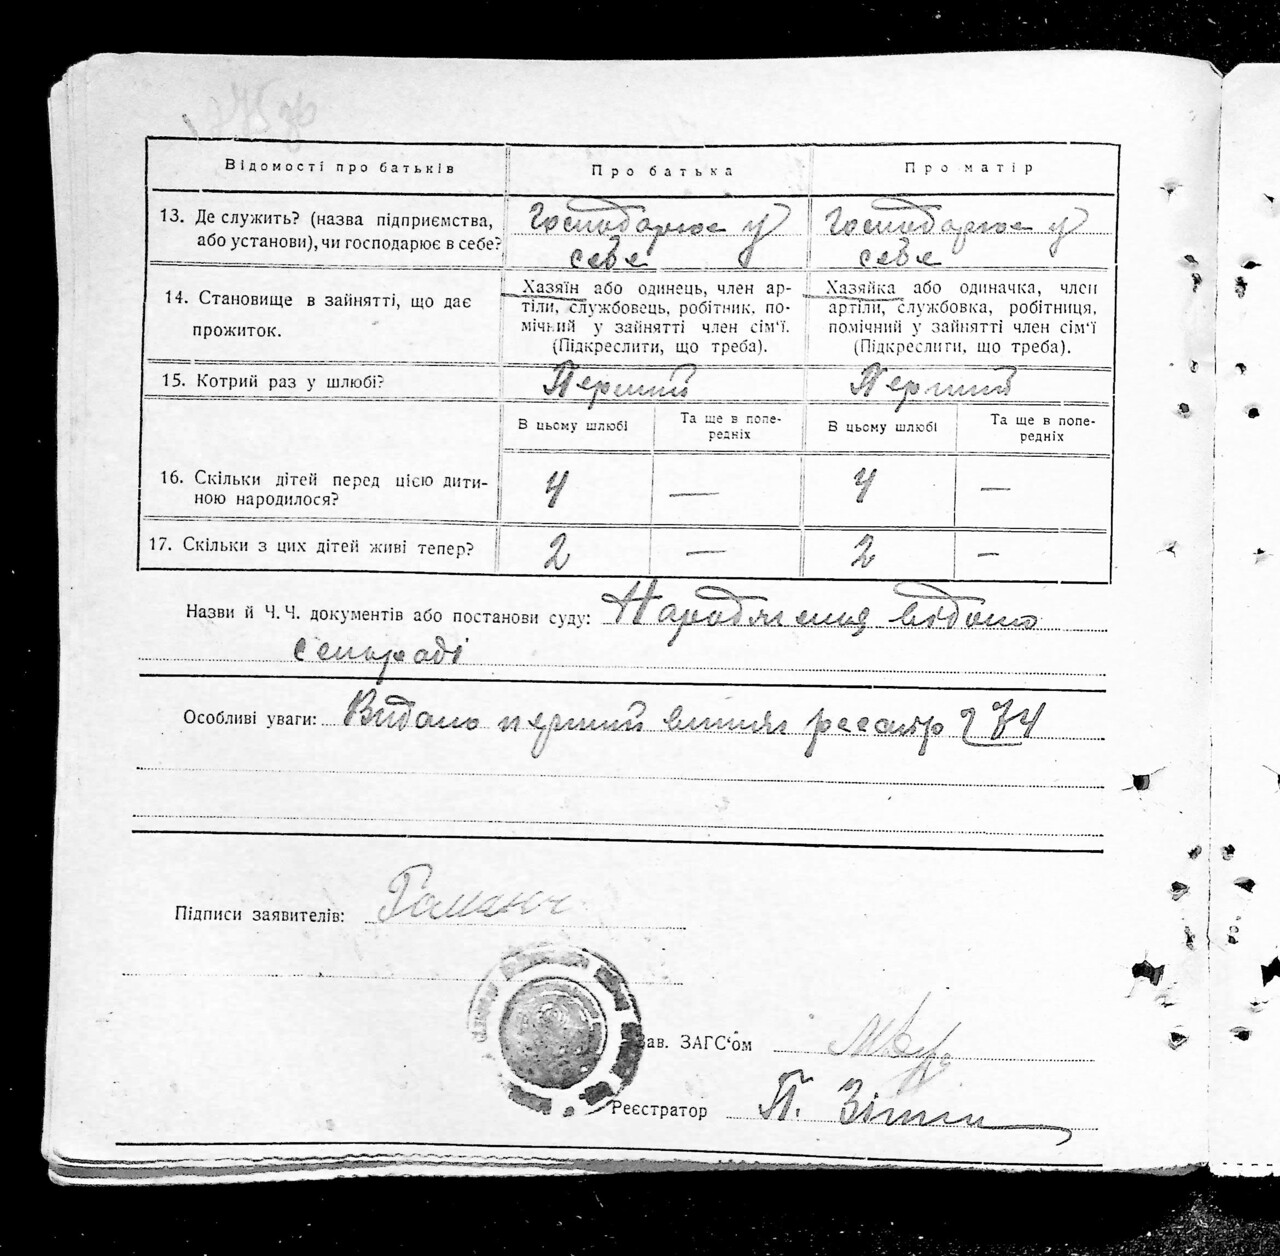 Відомості про батьків
Про батька
Про матір
13. Де служить? (назва підприємства,
або установи), чи господарює в себе?
Господарює у
себе
Господарює у
себе
14. Становище в зайнятті, що дає
прожиток.
Хазяїн або одинець, член ар-
тіли, службовець, робітник, по-
мічний у зайнятті член сім'ї.
(Підкреслити, що треба).
Хазяйка або одиначка, член
артіли, службовка, робітниця,
помічний у зайнятті член сім'ї
(Підкреслити, що треба).
15. Котрий раз у шлюбі?
Перший
Перший
В цьому шлюбі
Та ще в попе-
редніх
В цьому шлюбі
Та ще в попе-
редніх
16. Скільки дітей перед цією дити-
ною народилося?
4
—
4
—
17. Скільки з цих дітей живі тепер?
2
—
2
—
Назви й Ч. Ч. документів або постанови суду: Народження відомо
сельраді
Особливі уваги: Видано перший витяг реєстр 234
Підписи заявителів:
Зав. ЗАГС'ом
Реєстратор П.